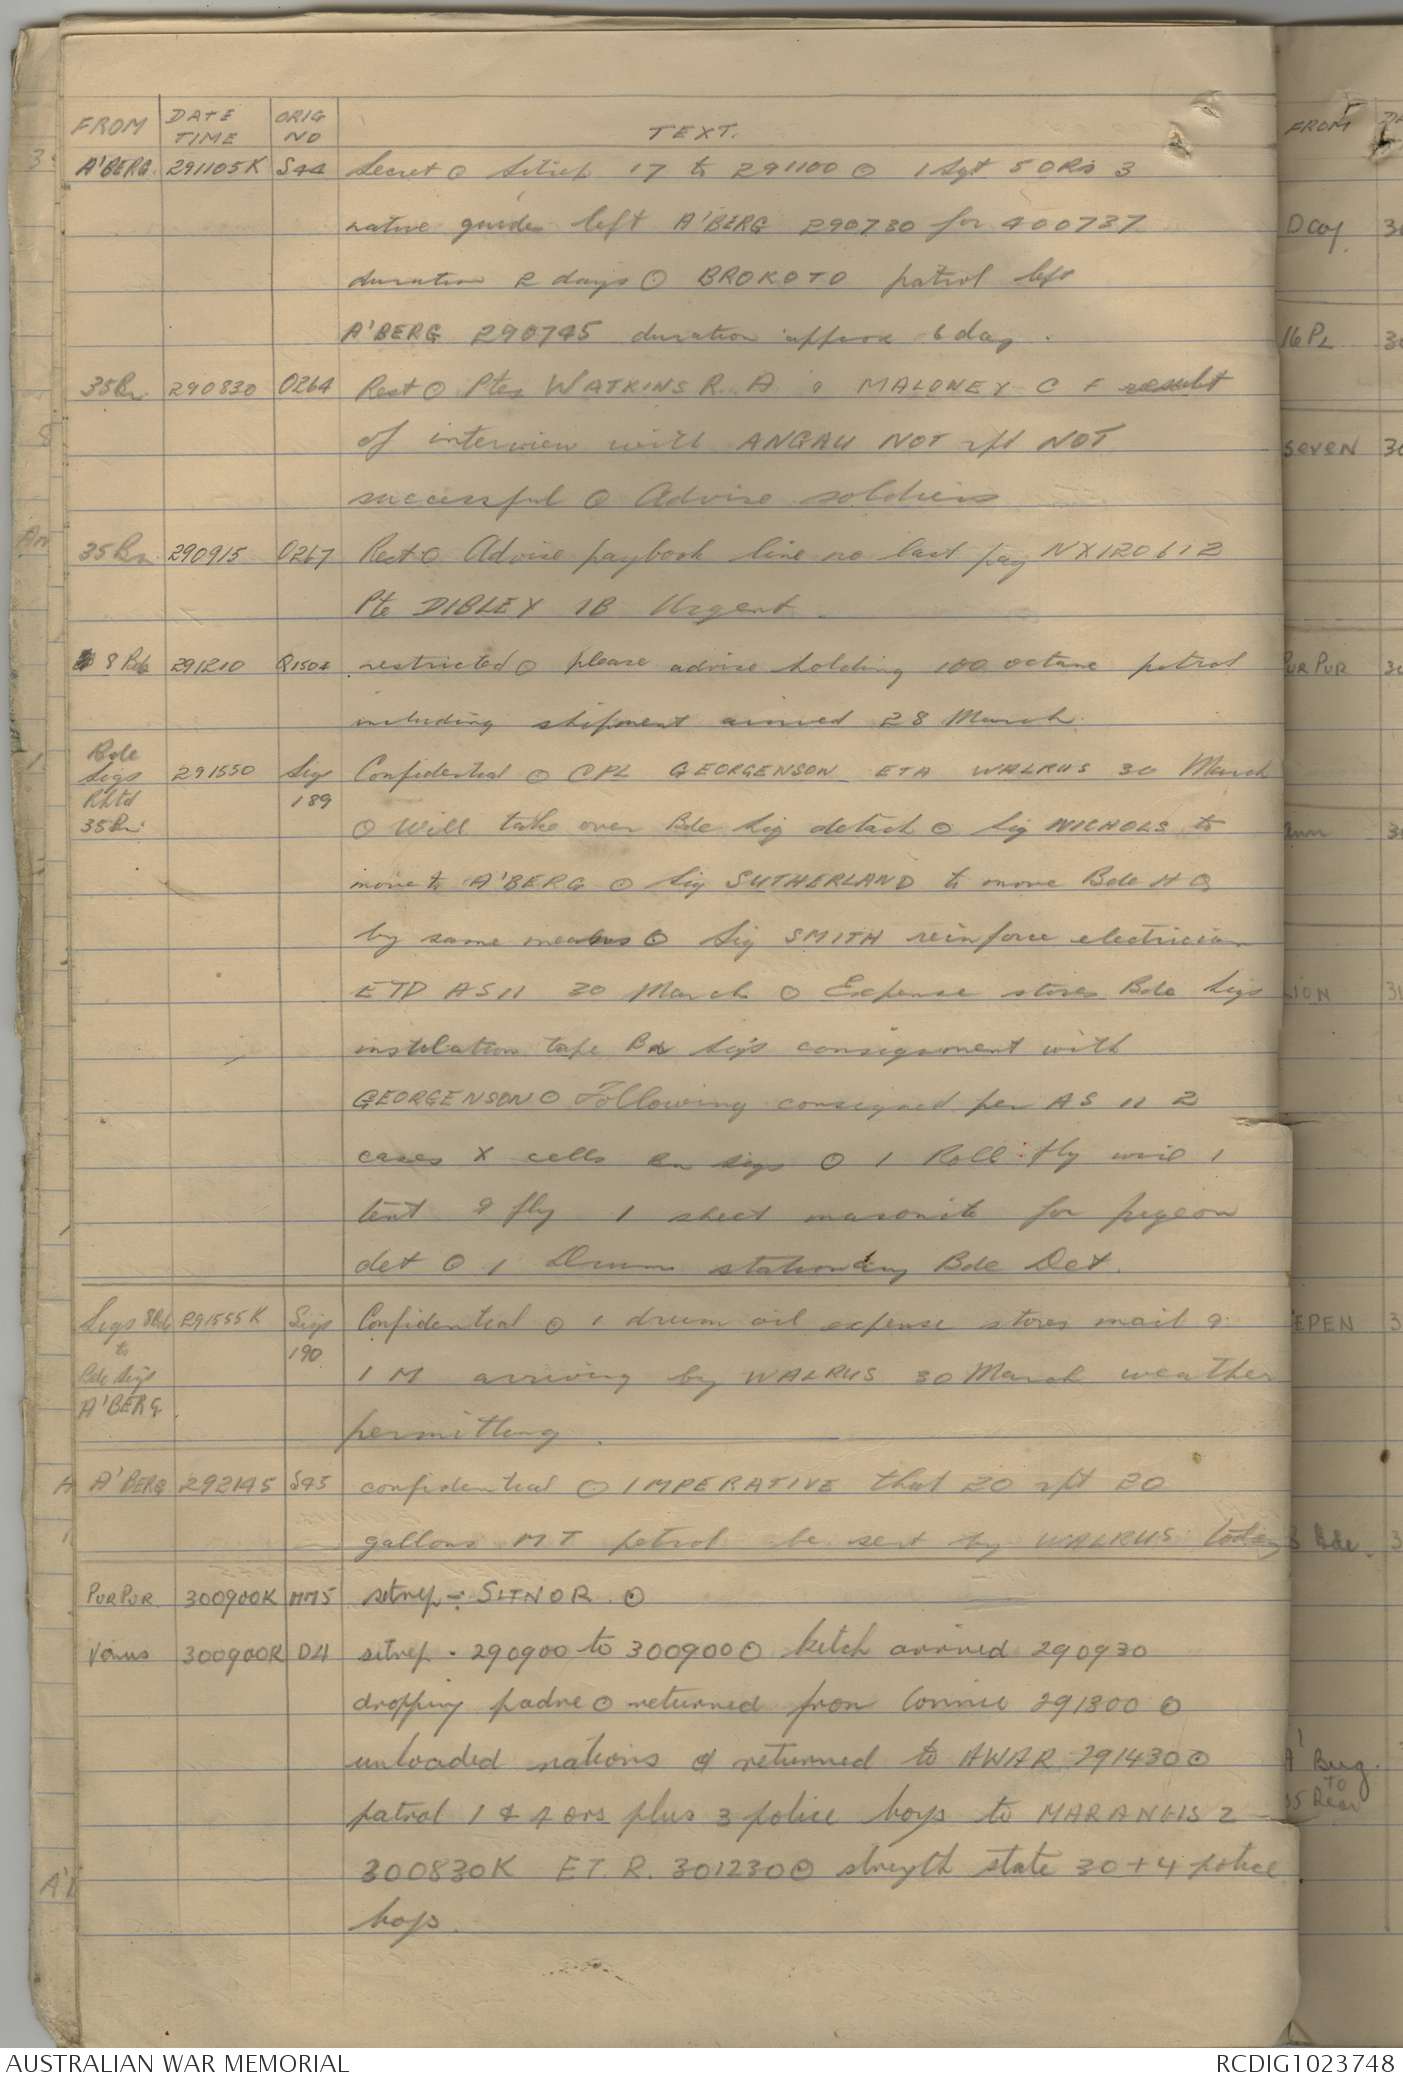 FROM DATE TIME ORIG NO TEXT.
A'BERG. 291105K S44 Secret ⊙ Sitrep 17 to 291100 ⊙ 1 Sgt 5 ORs 3
native guides left A'BERG 290730 for 400737
duration 2 days ⊙ BROKOTO patrol left
A'BERG 290745 duration approx 6 day.
35Bn 290830 O264 Rest ⊙ Ptes WATKINS R. A & MALONEY C F result
of interview with ANGAU NOT rpt NOT
successful ⊙ Advise soldiers
35Bn 290915 O267 Rest ⊙ Advise paybook line no last pay NX120612
Pte DIBLEY IB Urgent.
8 Bde 291210 Q1504 restricted ⊙ please advise holding 100 octane petrol
including shipment arrived 28 March.
Bde Sigs Rptd 35Bn 291550 Sigs 189 Confidential ⊙ CPL GEORGENSON ETA WALRUS 30 March
⊙ Will take over Bde Sig detach ⊙ Sig NICHOLS to
move to A'BERG ⊙ Sig SUTHERLAND to move Bde HQ
by same means ⊙ Sig SMITH reinforce electrician
ETD AS11 30 March ⊙ Expense stores Bde Sigs
insulation tape Bn Sigs consignment with
GEORGENSON ⊙ Following consigned per AS 11 2
cases X cells Bn Sigs ⊙ 1 Roll fly wire 1
tent & fly 1 sheet masonite for pigeon
det ⊙ 1 Drum stationery Bde Det.
Sigs 8Bde to Bde Sigs A'BERG. 291555K Sigs 190 Confidential ⊙ 1 drum oil expense stores mail &
1 M arriving by WALRUS 30 March weather
permitting.
A'BERG 292145 S45 confidential ⊙ IMPERATIVE that 20 rpt 20
gallons MT petrol be sent by WALRUS today
PURPUR. 300900K MM5 sitrep - SITNOR. ⊙
Venus 300900K D4 sitrep - 290900 to 300900 ⊙ ketch arrived 290930
dropping padre ⊙ returned from Connie 291300 ⊙
unloaded rations & returned to AWAR 291430 ⊙
patrol 1 & 4 ors plus 3 police boys to MARANGIS 2
300830K ET.R. 301230 ⊙ strength state 30 + 4 police
boys.
FROM
D Coy
16 PL
SEVEN
PURPUR
LION
8 Bde
A'Berg.
to
35 Rear
AUSTRALIAN WAR MEMORIAL RCDIG1023748